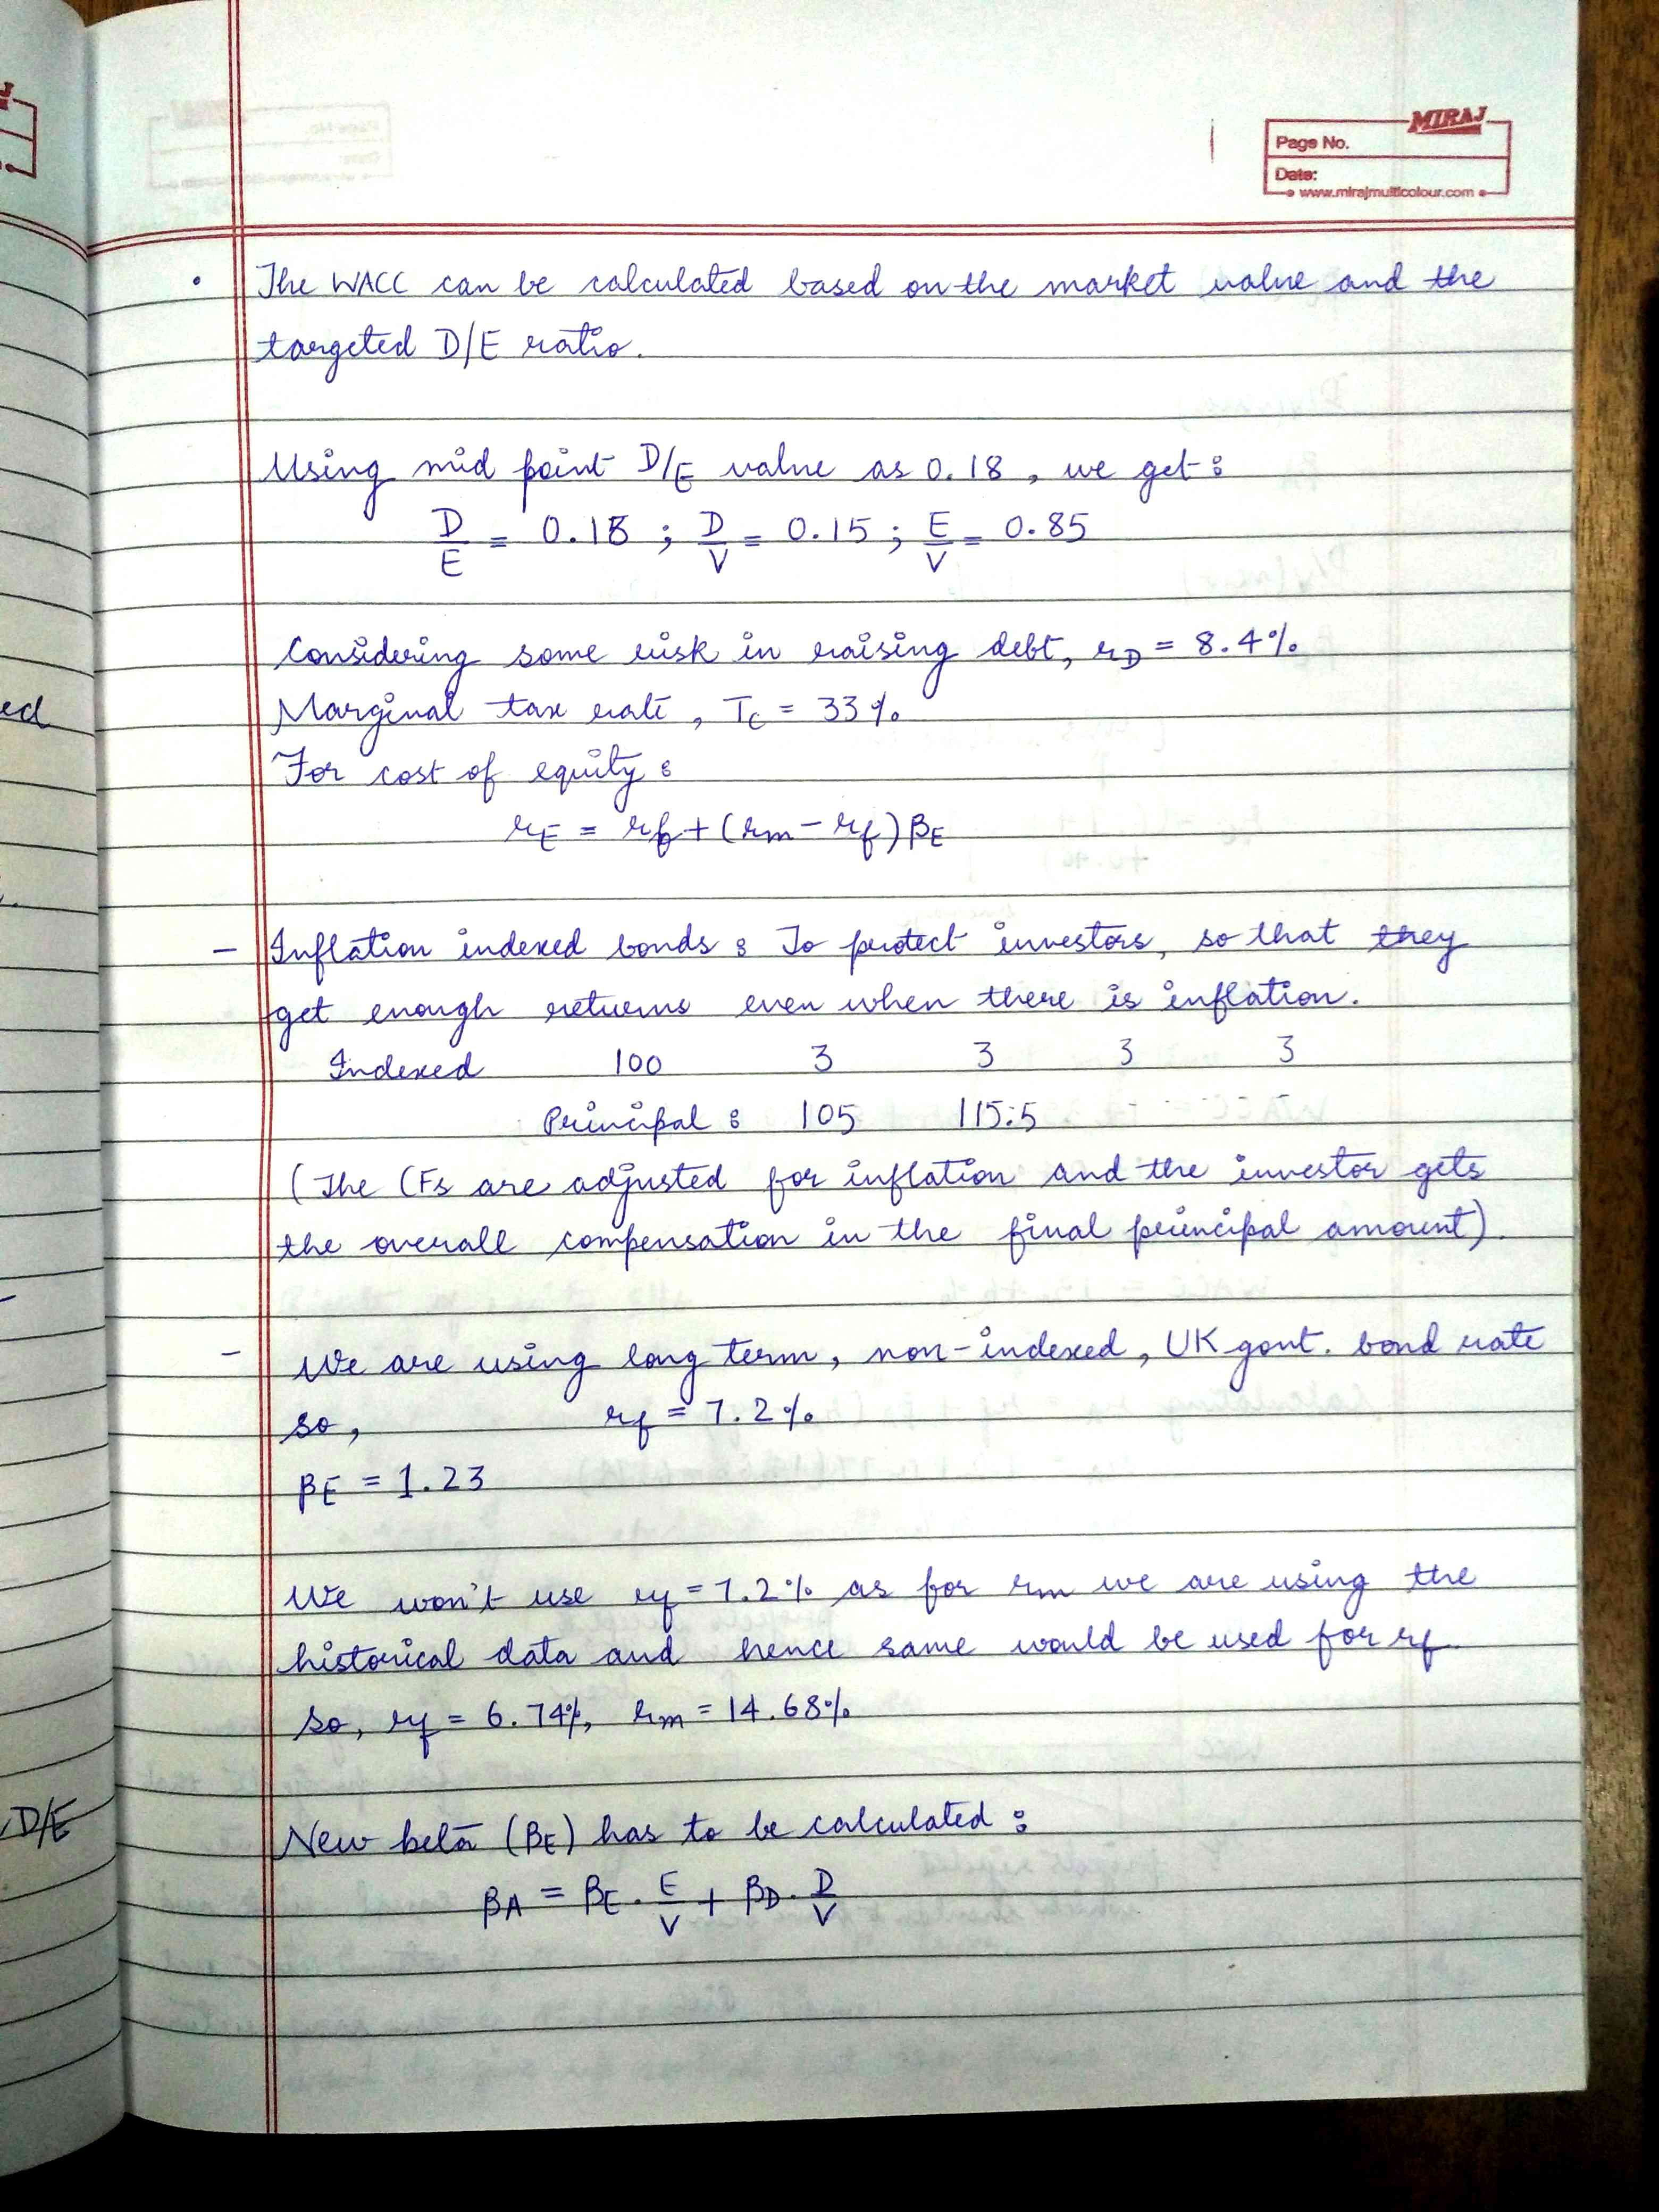 MIRAJ
Page No.
Date:
www.mirajmulticolour.com
• The WACC can be calculated based on the market value and the
targeted D/E ratio.
Using mid point D/E value as 0.18, we get:
D/E = 0.18 ; D/V = 0.15 ; E/V = 0.85
Considering some risk in raising debt, rD = 8.4%
Marginal tax rate, Tc = 33%
For cost of equity:
rE = rf + (rm - rf) βE
- Inflation indexed bonds: To protect investors, so that they
get enough returns even when there is inflation.
Indexed 100 3 3 3 3
Principal: 105 115.5 - - -
(The CFs are adjusted for inflation and the investor gets
the overall compensation in the final principal amount).
- We are using long term, non-indexed, UK govt. bond rate
so, rf = 7.2%
βE = 1.23
We won't use rf = 7.2% as for rm we are using the
historical data and hence same would be used for rf
so, rf = 6.74%, rm = 14.68%
New beta (βE) has to be calculated:
βA = βE . E/V + βD . D/V
ed
D/E